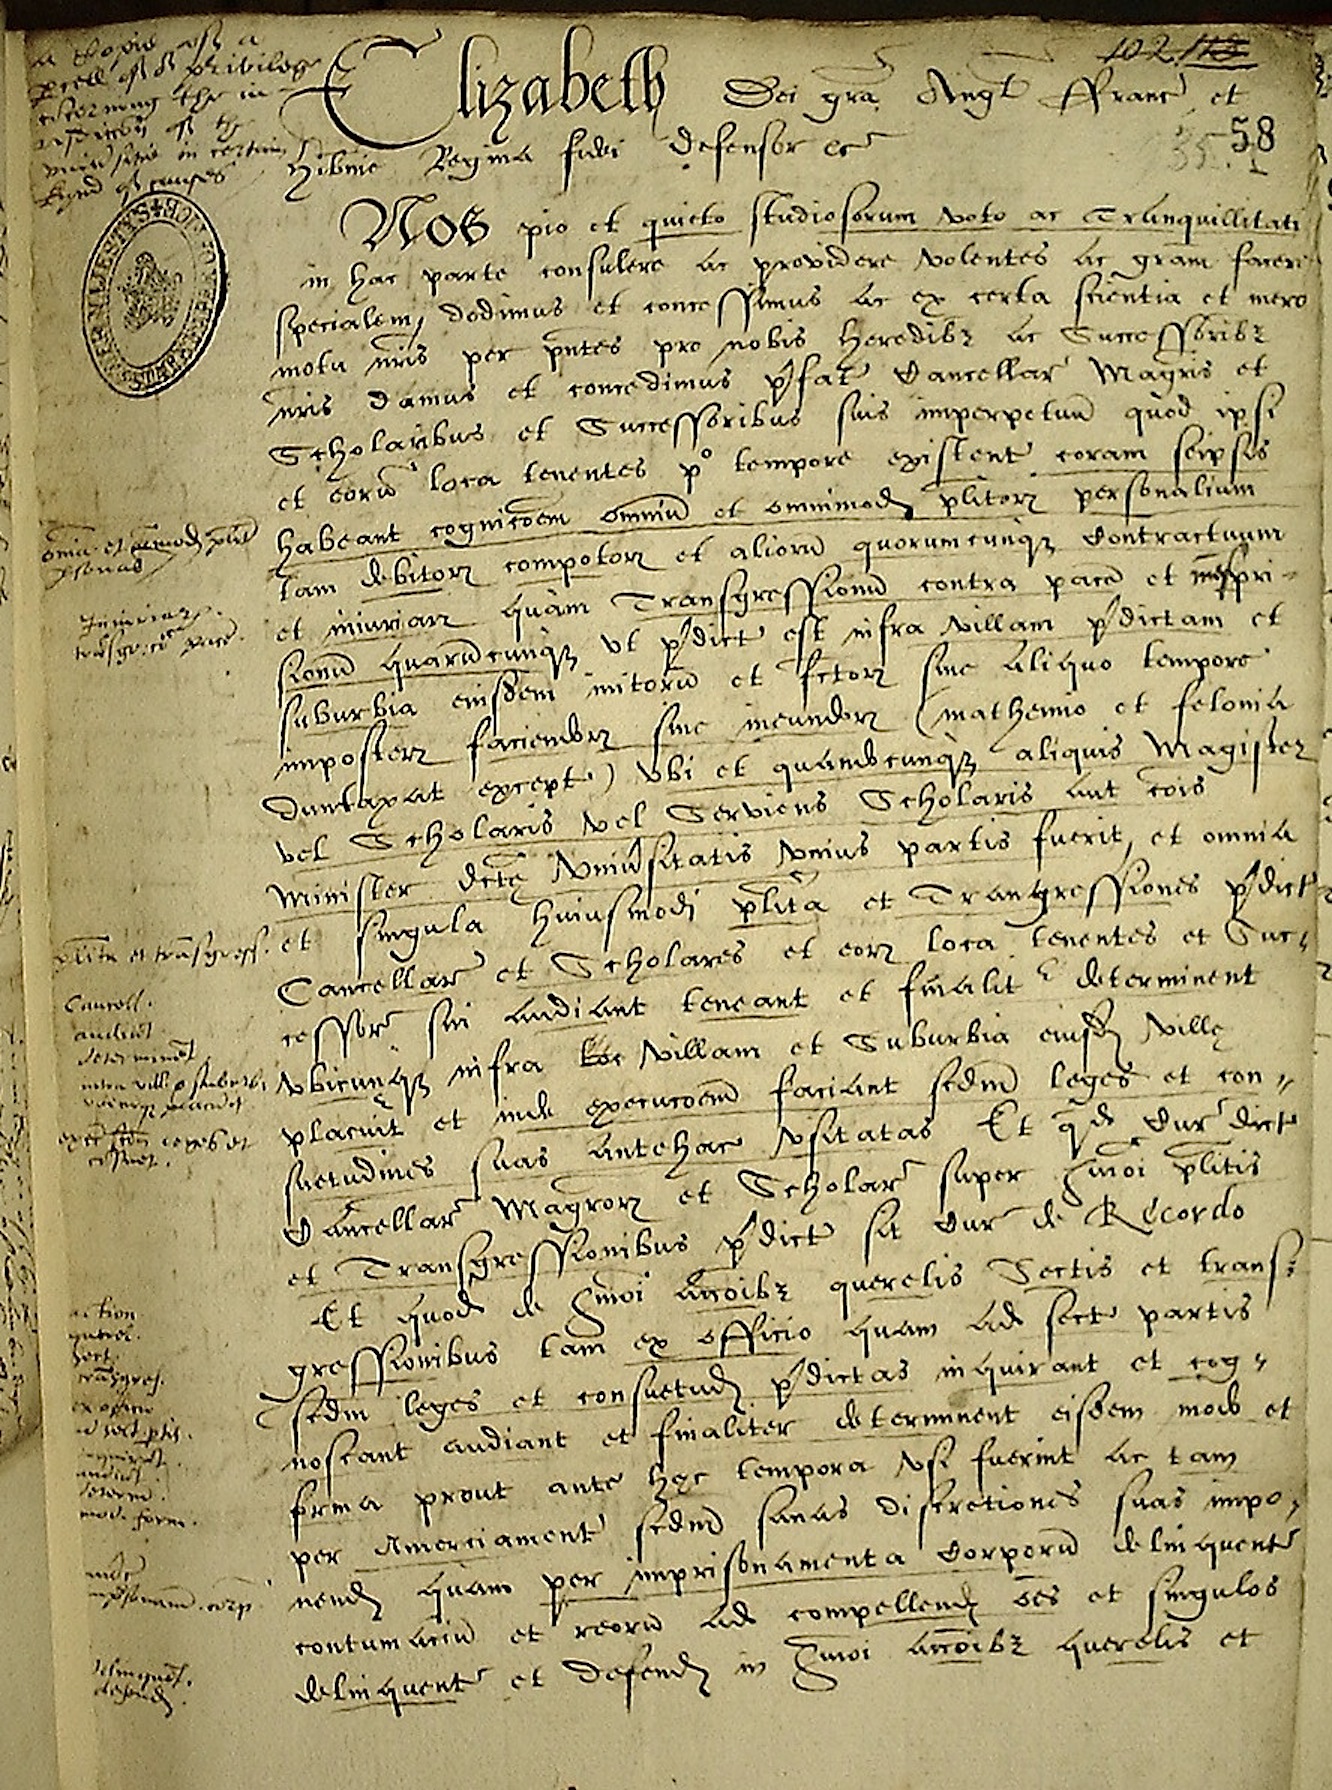 a Copie of a
pcell of ye privilege
concerning the in
in certain
kynd of causes
102 118
58
Elizabeth Dei gra Angl ffranc et
Hibnie Regina fidei defensor &c
Nos pio et quieto studiosorum voto ac Tranquillitati
in hac parte consulere ac providere volentes ac gram facere
specialem, dedimus et concessimus ac ex certa scientia et mero
motu nris per pntes pro nobis heredibz ac Successoribz
nris damus et concedimus pfat Cancellar Magris et
Scholaribus et Successoribus suis imperpetuu quod ipsi
et eoru loca tenentes po tempore existent coram seipsis
habeant cognicoem omniu et omnimod plitorz personalium
tam debitorz compotorz et alioru quorumcunqz Contractuum
et iniuriarz quam Transgressionu contra pace et mispri-
sionu quarucunqz vt pdict est infra villam pdictam et
suburbia eiusdem initoru et fctorz sine aliquo tempore
imposterz faciendorz sine ineundorz (mathemio et felonia
duntaxat except) vbi et quandocunqz aliquis Magister
vel Scholaris vel Serviens Scholaris aut cois
Minister dicte Vniusitatis vnius partis fuerit, et omnia
et singula huiusmodi plita et Transgressiones pdict
Cancellar et Scholares et eorz loca tenentes et Suc-
cessor sui audiant teneant et finalit determinent
vbicunqz infra villam et Suburbia eiusd ville
placuit et inde execucoem faciant scdm leges et con-
suetudines suas antehac vsitatas Et qd Cur dict
Cancellar Magrorz et Scholar super hmoi plitis
et Transgressionibus pdict sit Cur de Recordo
Et quod de hmoi accoibz querelis Sectis et trans-
gressionibus tam ex officio quam ad sect partis
scdm leges et consuetud pdictas inquirant et cog-
noscant audiant et finaliter determinent eisdem modo et
forma prout ante hec tempora vsi fuerint ac tam
per Amerciament scdm sanas discretiones suas impo-
nend quam per imprisonamenta Corporu delinquent
contumaciu et reoru ad compellend oes et singulos
delinquent et defend in hmoi accoibz querelis et
omniu et omnimod plit
psonas
Iniuriarz.
trasgr. co pace.
plita et transgress.
Cancell.
audiat
determinet
intra villa & suburbi
vbicunqz placuit
leges et
action
querel.
sect.
transgres.
ex officio
ad sect ptis.
inquirat.
audiat.
determ.
mod. form.
delinquet.
defend.